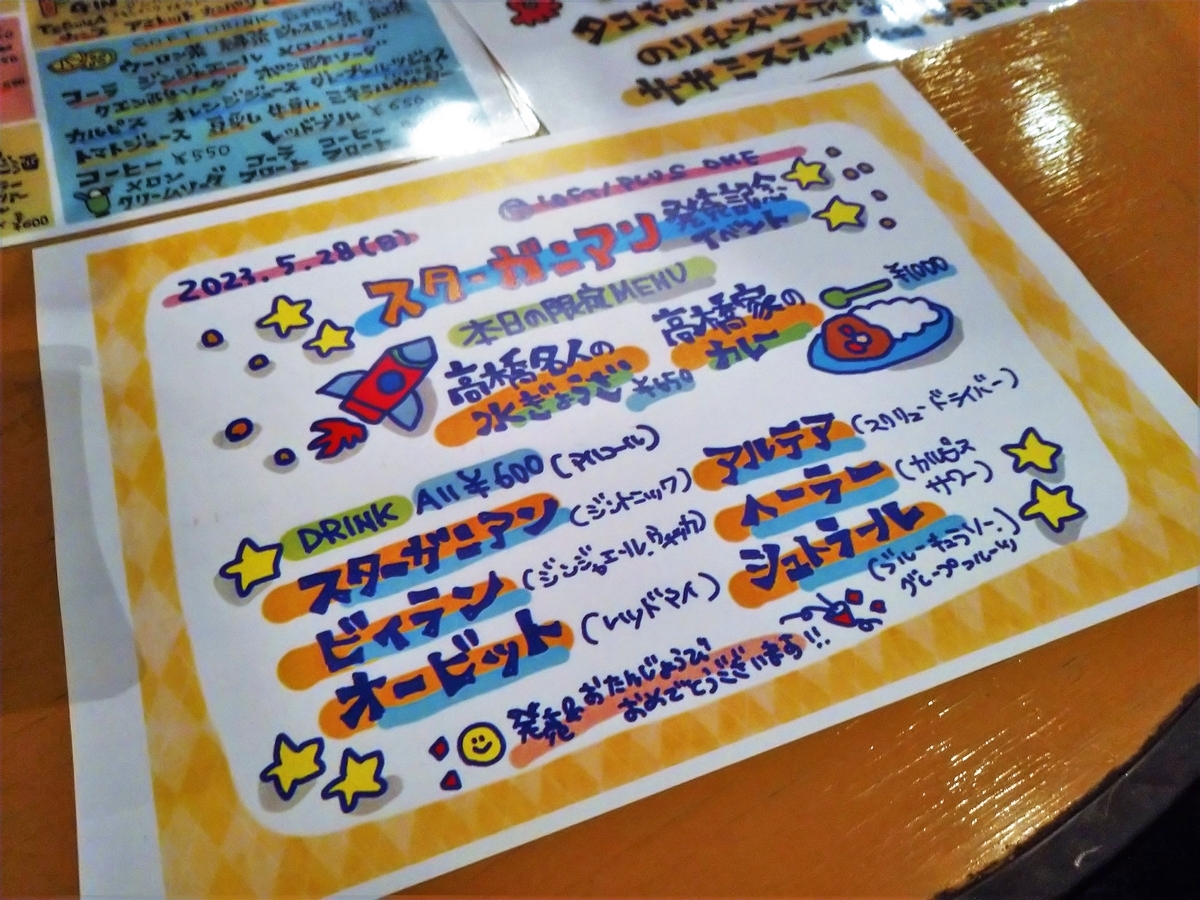 SOFT DRINK
ウーロン茶 緑茶 ジャスミン茶
コーラ ジンジャエール メロンソーダ
クエン酢ソーダ
カルピス オレンジジュース
トマトジュース
レッドブル ¥650
コーヒー ¥550
コーラフロート コーヒーフロート
メロンクリームソーダ
¥600
LOFT/PLUS ONE
2023.5.28(日)
スターガンマン 発売記念
イベント
本日の限定MENU
高橋名人の
水ぎょうざ ¥650
高橋家の
カレー
¥1000
DRINK All ¥600 (アルコール)
スターガンマン (ジントニック)
ビィラン (ジンジャエール、ウォッカ)
オービット (レッドアイ)
アルテア (スクリュードライバー)
イーラー (カルピス
サワー)
シュトラール (ブルーキュラソー、
グレープフルーツ)
発売&おたんじょうび
おめでとうございます!!
チキンスティック